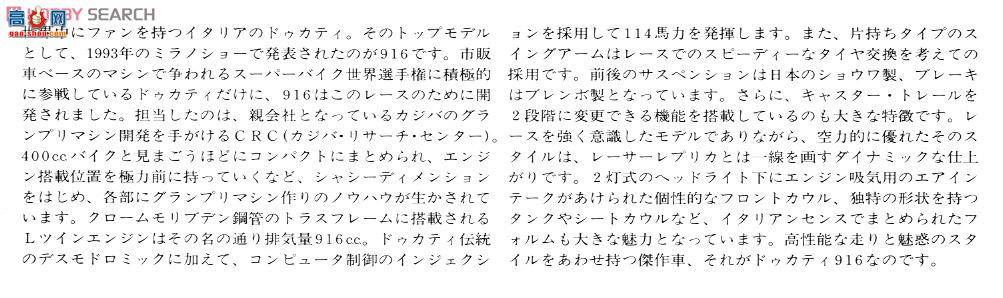 HOBBY SEARCH
高手网
gao-shou.com
世界中にファンを持つイタリアのドゥカティ。そのトップモデル
として、1993年のミラノショーで発表されたのが916です。市販
車ベースのマシンで争われるスーパーバイク世界選手権に積極的
に参戦しているドゥカティだけに、916はこのレースのために開
発されました。担当したのは、親会社となっているカジバのグラ
ンプリマシン開発を手がけるCRC(カジバ・リサーチ・センター)。
400ccバイクと見まごうほどにコンパクトにまとめられ、エンジ
ン搭載位置を極力前に持っていくなど、シャシーディメンション
をはじめ、各部にグランプリマシン作りのノウハウが生かされて
います。クロームモリブデン鋼管のトラスフレームに搭載される
Lツインエンジンはその名の通り排気量916cc。ドゥカティ伝統
のデスモドロミックに加えて、コンピュータ制御のインジェクシ
ョンを採用して114馬力を発揮します。また、片持ちタイプのス
イングアームはレースでのスピーディーなタイヤ交換を考えての
採用です。前後のサスペンションは日本のショウワ製、ブレーキ
はブレンボ製となっています。さらに、キャスター・トレールを
2段階に変更できる機能を搭載しているのも大きな特徴です。レ
ースを強く意識したモデルでありながら、空力的に優れたそのス
タイルは、レーサーレプリカとは一線を画すダイナミックな仕上
がりです。2灯式のヘッドライト下にエンジン吸気用のエアイン
テークがあけられた個性的なフロントカウル、独特の形状を持つ
タンクやシートカウルなど、イタリアンセンスでまとめられたフ
ォルムも大きな魅力となっています。高性能な走りと魅惑のスタ
イルをあわせ持つ傑作車、それがドゥカティ916なのです。